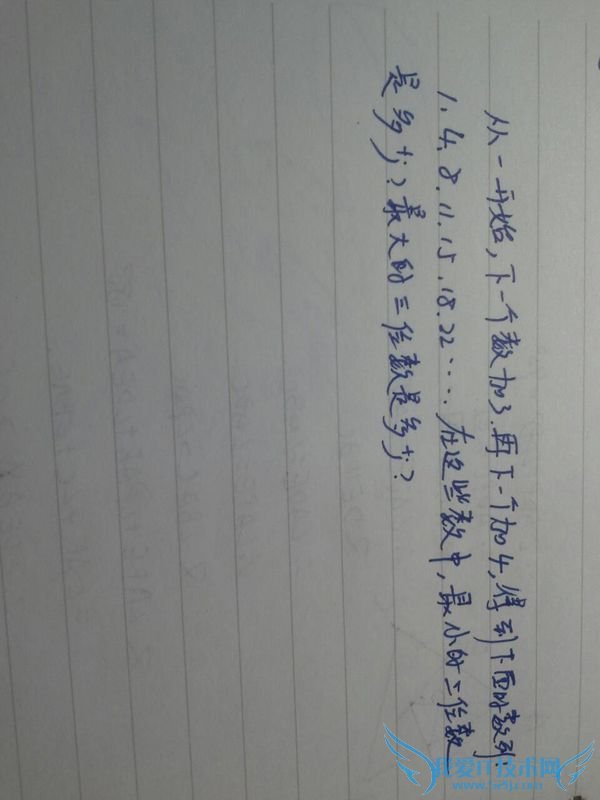 从一开始,下一个数加3.再下一个加4,得到下面的数列.
1.4.8.11.15.18.22.....在这些数中,最小的三位数
是多少?最大的三位数是多少?
我爱IT技术网
www.52ij.com